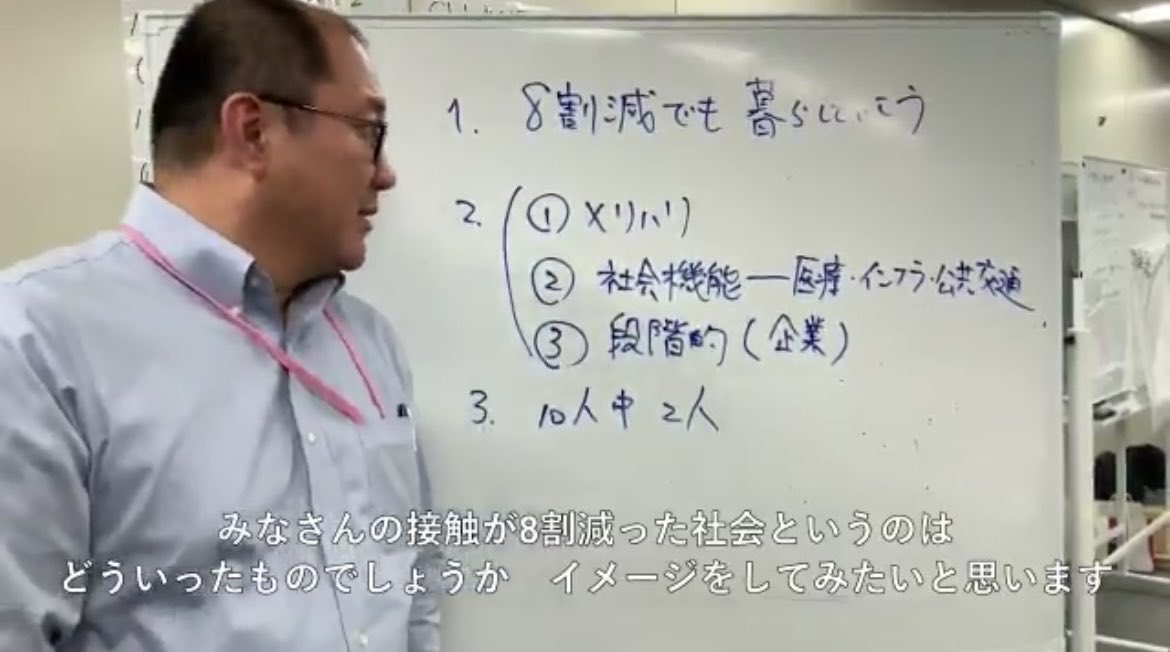 1. 8割減でも 暮らしていこう
2. ① メリハリ
② 社会機能―医療・インフラ・公共交通
③ 段階的(企業)
3. 10人中 2人
みなさんの接触が8割減った社会というのは
どういったものでしょうか イメージをしてみたいと思います